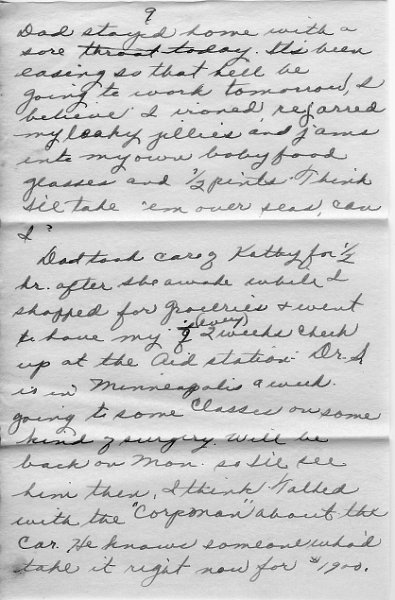 9
Dad stayed home with a
sore throat today. It's been
easing so that he'll be
going to work tomorrow, I
believe. I ironed, rejarred
my leaky jellies and jams
into my own baby food
glasses and 1/2 pints. Think
I'll take 'em over seas, can
I?
Dad took care of Kathy for 1/2
hr. after she awoke while I
shopped for groceries & went
to have my (every) 2 weeks check
up at the Aid station. Dr. S.
is in Minneapolis a week
going to some classes on some
kind of surgery. Will be
back on Mon. so I'll see
him then, I think. Talked
with the "Corpsman" about the
car. He knows someone who'd
take it right now for $1900.